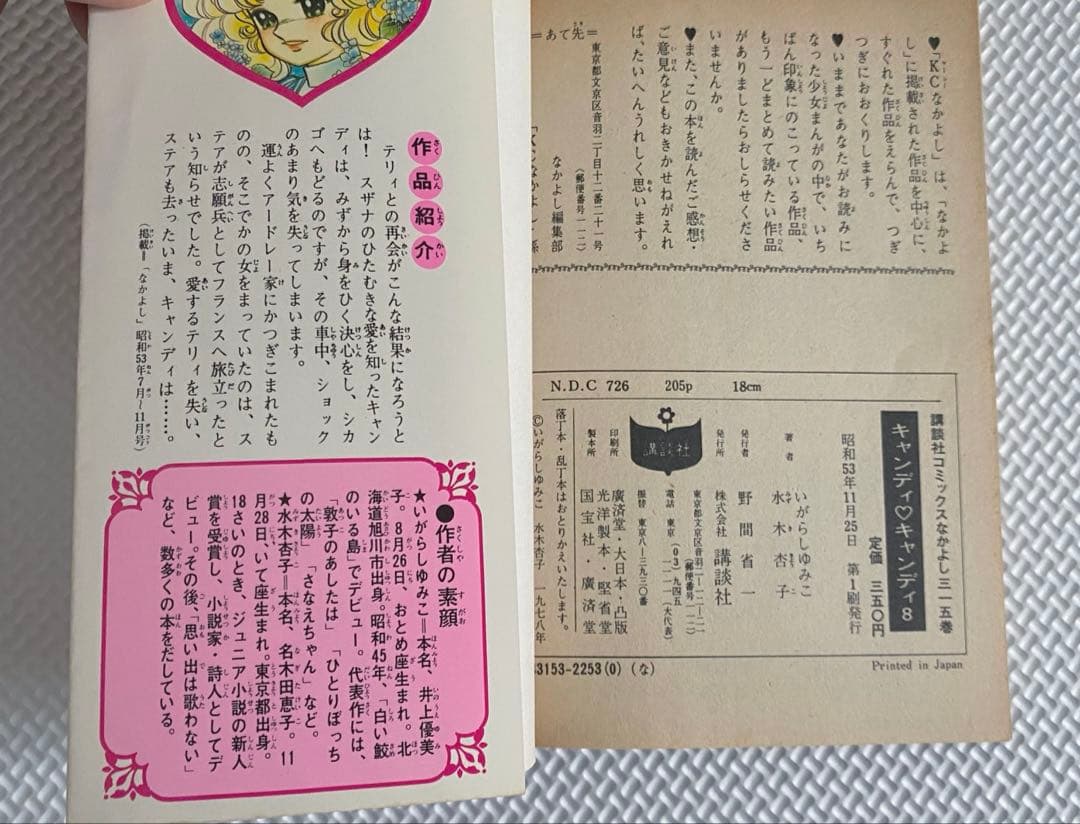 ♥「KCなかよし」は、「なかよ
し」に掲載された作品を中心に、
すぐれた作品をえらんで、つぎ
つぎにおおくりします。
♥いままであなたがお読みに
なった少女まんがの中で、いち
ばん印象にのこっている作品、
もう一どまとめて読みたい作品
がありましたらおしらせくださ
いませんか。
♥また、この本を読んだご感想・
ご意見などもおきかせねがえれ
ば、たいへんうれしく思います。
=あて先=
東京都文京区音羽二丁目十二番二十一号
(郵便番号一一二)
なかよし編集部
「KCなかよし」係
N.D.C 726 205p 18cm
講談社コミックスなかよし三一五巻
キャンディ♡キャンディ8
定価 三五〇円
昭和53年11月25日 第1刷発行
著者 いがらしゆみこ
水木杏子
発行者 野間省一
発行所 株式会社 講談社
東京都文京区音羽二-一二-二一
(郵便番号一一二)
電話 東京(03)九四五-一一一一(大代表)
振替 東京八-三九三〇番
講談社
印刷所 廣済堂・大日本・凸版
製本所 光洋製本・堅省堂
国宝社・廣済堂
落丁本・乱丁本はおとりかえいたします。
©いがらしゆみこ 水木杏子 一九七八年
3153-2253(0)(な)
Printed in Japan
作品紹介
テリィとの再会がこんな結果になろうと
は! スザナのひたむきな愛を知ったキャン
ディは、みずから身をひく決心をし、シカ
ゴへもどるのですが、その車中、ショック
のあまり気を失ってしまいます。
運よくアードレー家にかつぎこまれたも
のの、そこでかの女をまっていたのは、ス
テアが志願兵としてフランスへ旅立ったと
いう知らせでした。愛するテリィを失い、
ステアも去ったいま、キャンディは……。
(掲載=「なかよし」昭和53年7月~11月号)
●作者の素顔
★いがらしゆみこ=本名、井上優美
子。8月26日、おとめ座生まれ。北
海道旭川市出身。昭和45年、「白い鮫
のいる島」でデビュー。代表作には、
「敦子のあしたは」「ひとりぼっち
の太陽」「さなえちゃん」など。
★水木杏子=本名、名木田恵子。11
月28日、いて座生まれ。東京都出身。
18さいのとき、ジュニア小説の新人
賞を受賞し、小説家・詩人としてデ
ビュー。その後、「思い出は歌わない」
など、数多くの本をだしている。